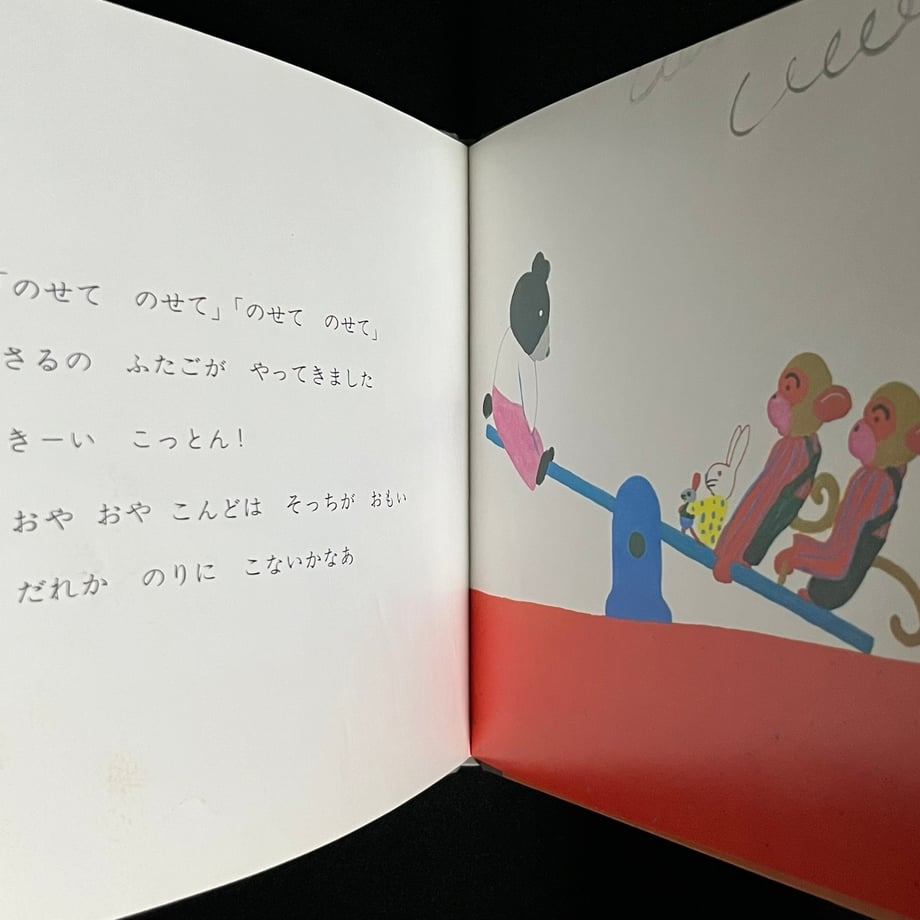 「のせて　のせて」「のせて　のせて」
さるの　ふたごが　やってきました
きーい　こっとん！
おや　おや　こんどは　そっちが　おもい
だれか　のりに　こないかなあ